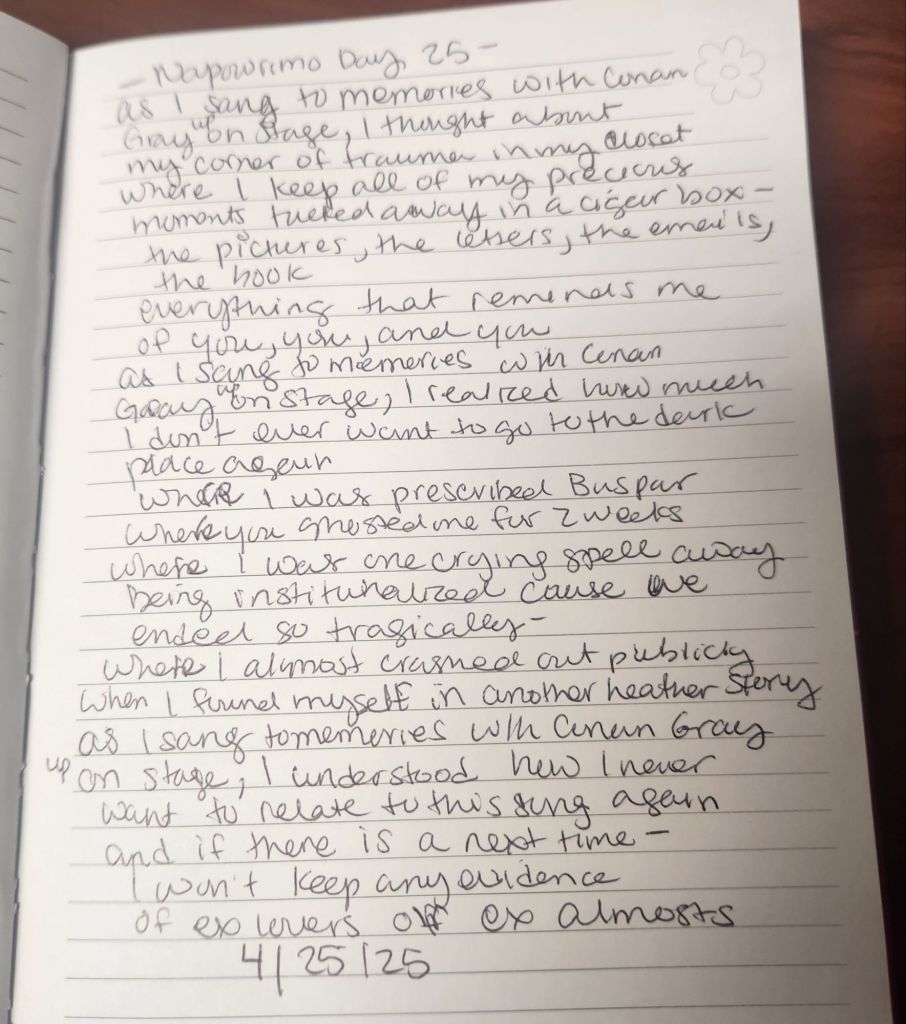 - Napowrimo Day 25 -
as I sang to memories with Conan
Gray up on stage, I thought about
my corner of trauma in my closet
where I keep all of my precious
moments tucked away in a cigar box -
the pictures, the letters, the emails,
the book
everything that reminds me
of you, you, and you
as I sang to memories with Conan
Gray up on stage, I realized how much
I don't ever want to go to the dark
place again
where I was prescribed Buspar
where you ghosted me for 2 weeks
where I was one crying spell away
being institunalized cause we
ended so tragically -
where I almost crashed out publicly
when I found myself in another heather story
as I sang to memories with Conan Gray
up on stage, I understood how I never
want to relate to this song again
and if there is a next time -
I won't keep any evidence
of ex lovers or ex almosts
4/25/25